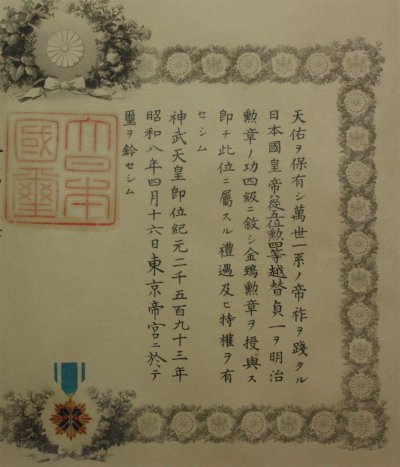 天佑ヲ保有シ萬世一系ノ帝祚ヲ踐タル
日本國皇帝從五位勲四等越替貞一ヲ明治
勲章ノ功四級ニ敘シ金鵄勲章ヲ授與ス
即チ此位ニ屬スル禮遇及ヒ特權ヲ有
セシム
神武天皇即位紀元二千五百九十三年
昭和八年四月十六日東京帝宮ニ於テ
璽ヲ鈐セシム
大日本
國璽